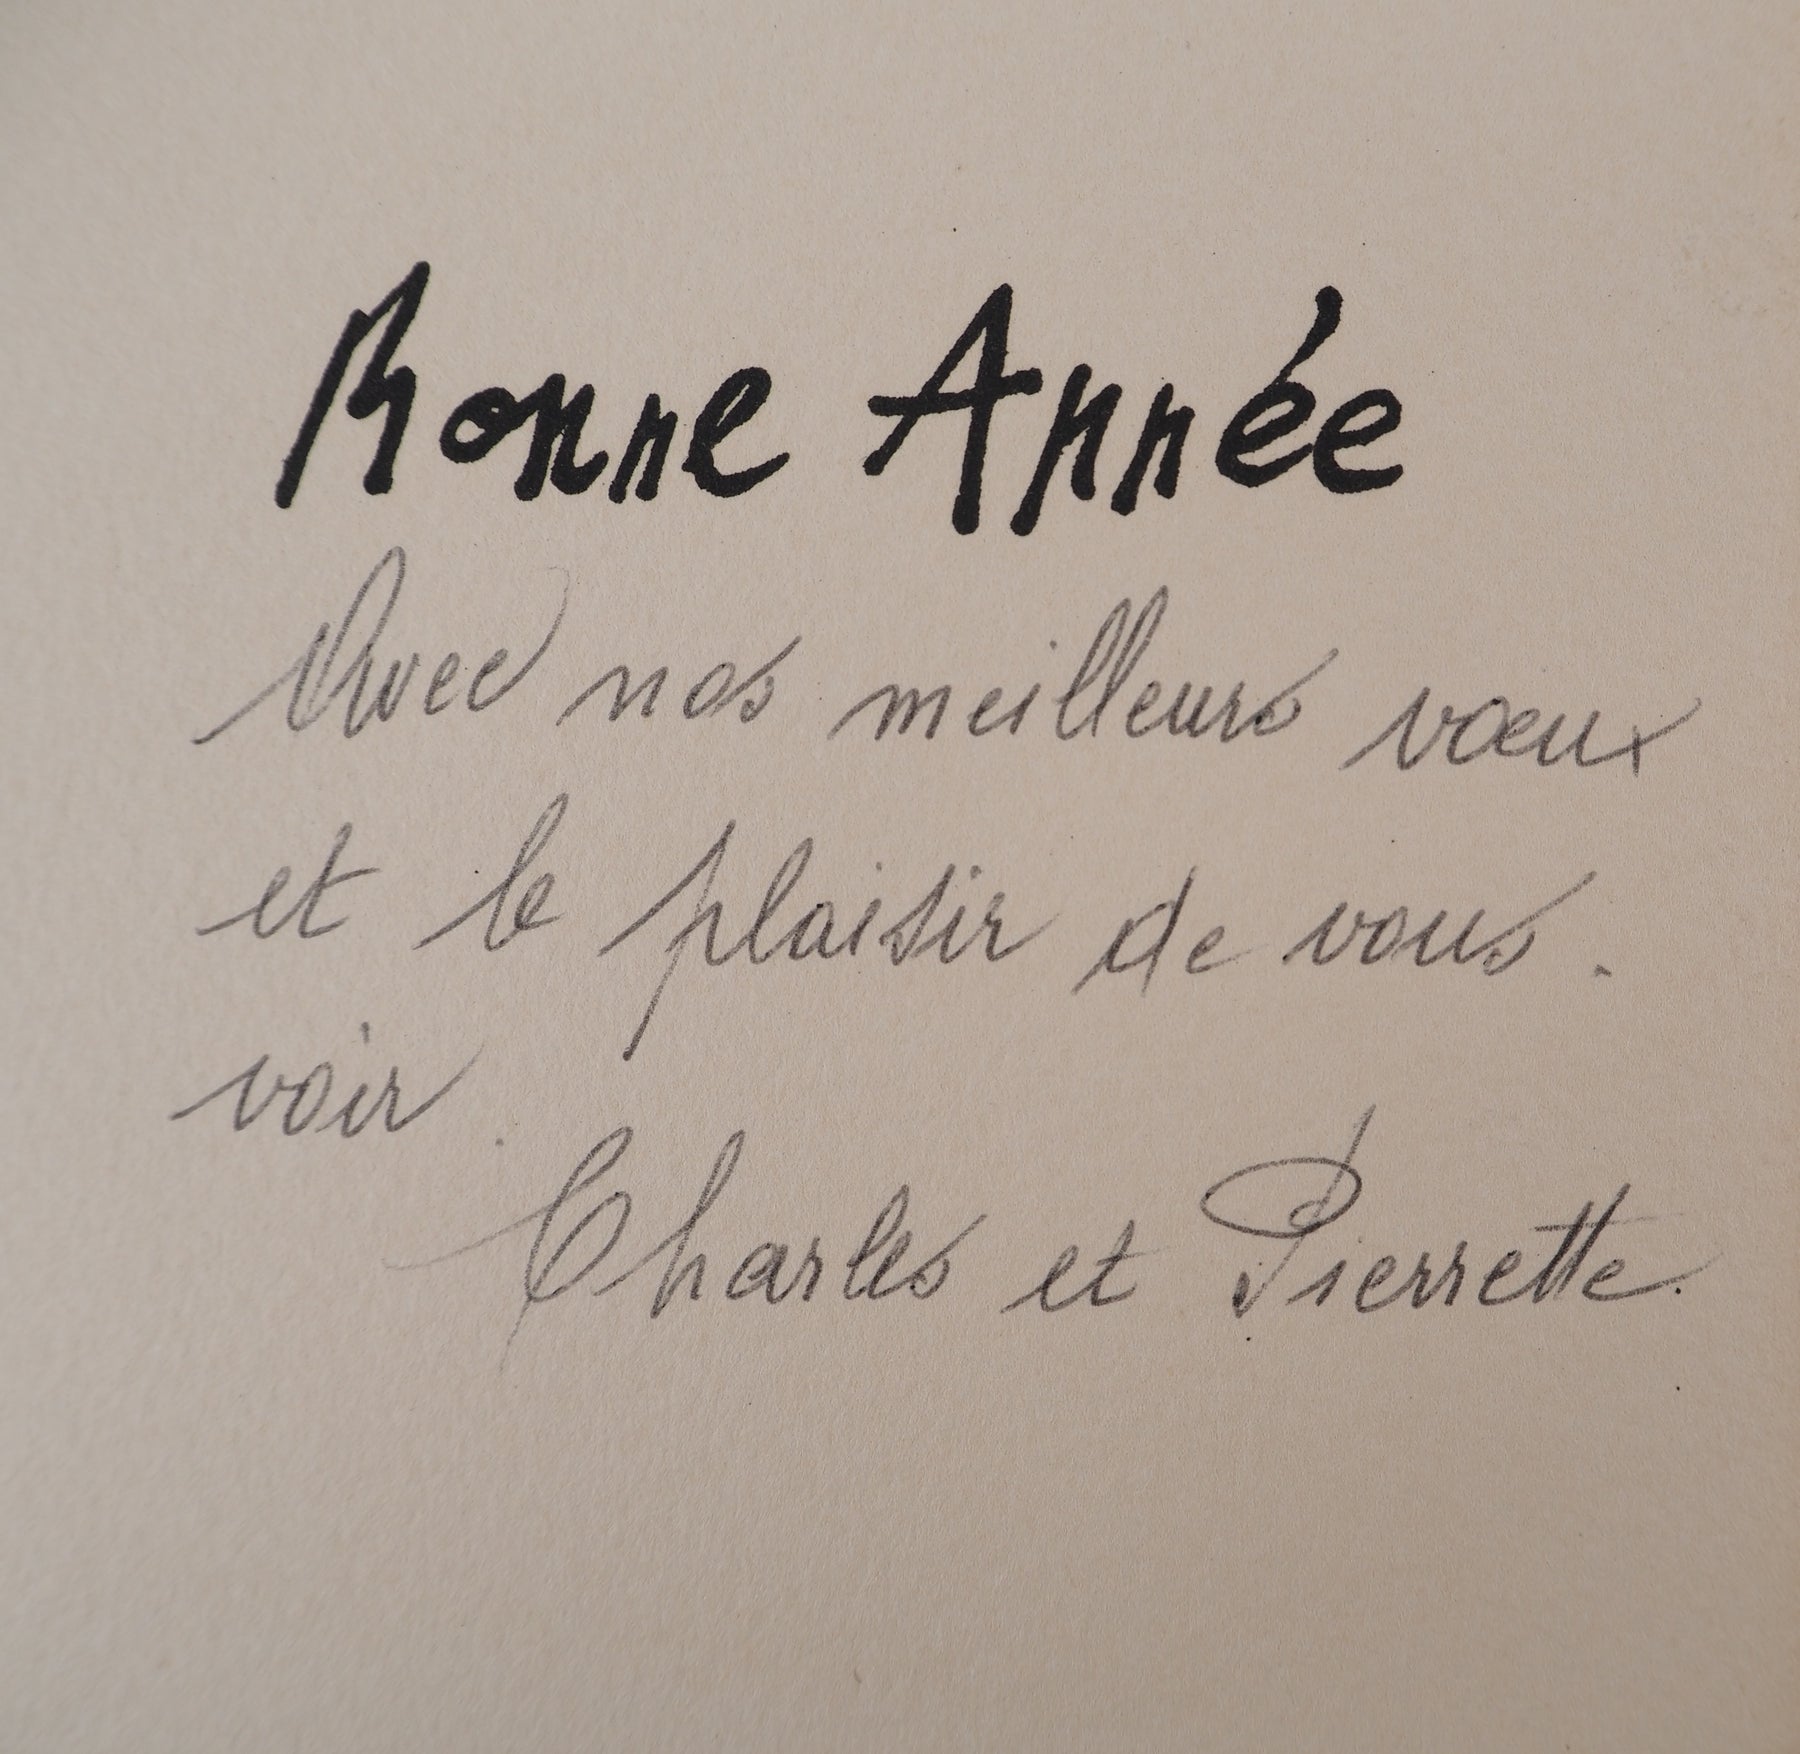 Bonne Année
Avec nos meilleurs vœux
et le plaisir de vous.
voir.
Charles et Pierrette.